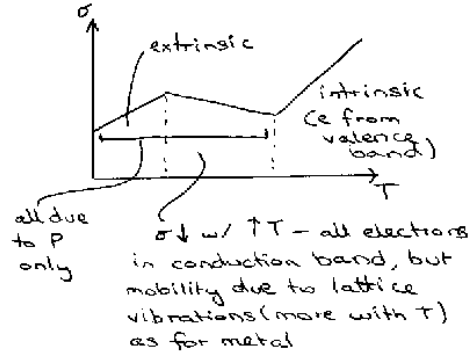 σ
extrinsic
intrinsic
(e from
valence
band)
T
all due
to P
only
σ↓ w/ ↑T - all electrons
in conduction band, but
mobility due to lattice
vibrations (more with T)
as for metal